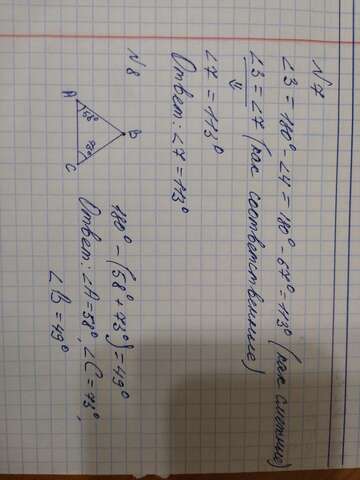 N 7
∠3 = 180° - ∠4 = 180° - 67° = 113° (как смежные)
∠3 = ∠7 (как соответственные)
⇓
∠7 = 113°
Ответ: ∠7 = 113°
N 8
B
58° 73°
A C
180° - (58° + 73°) = 49°
Ответ: ∠A = 58°, ∠C = 73°,
∠B = 49°